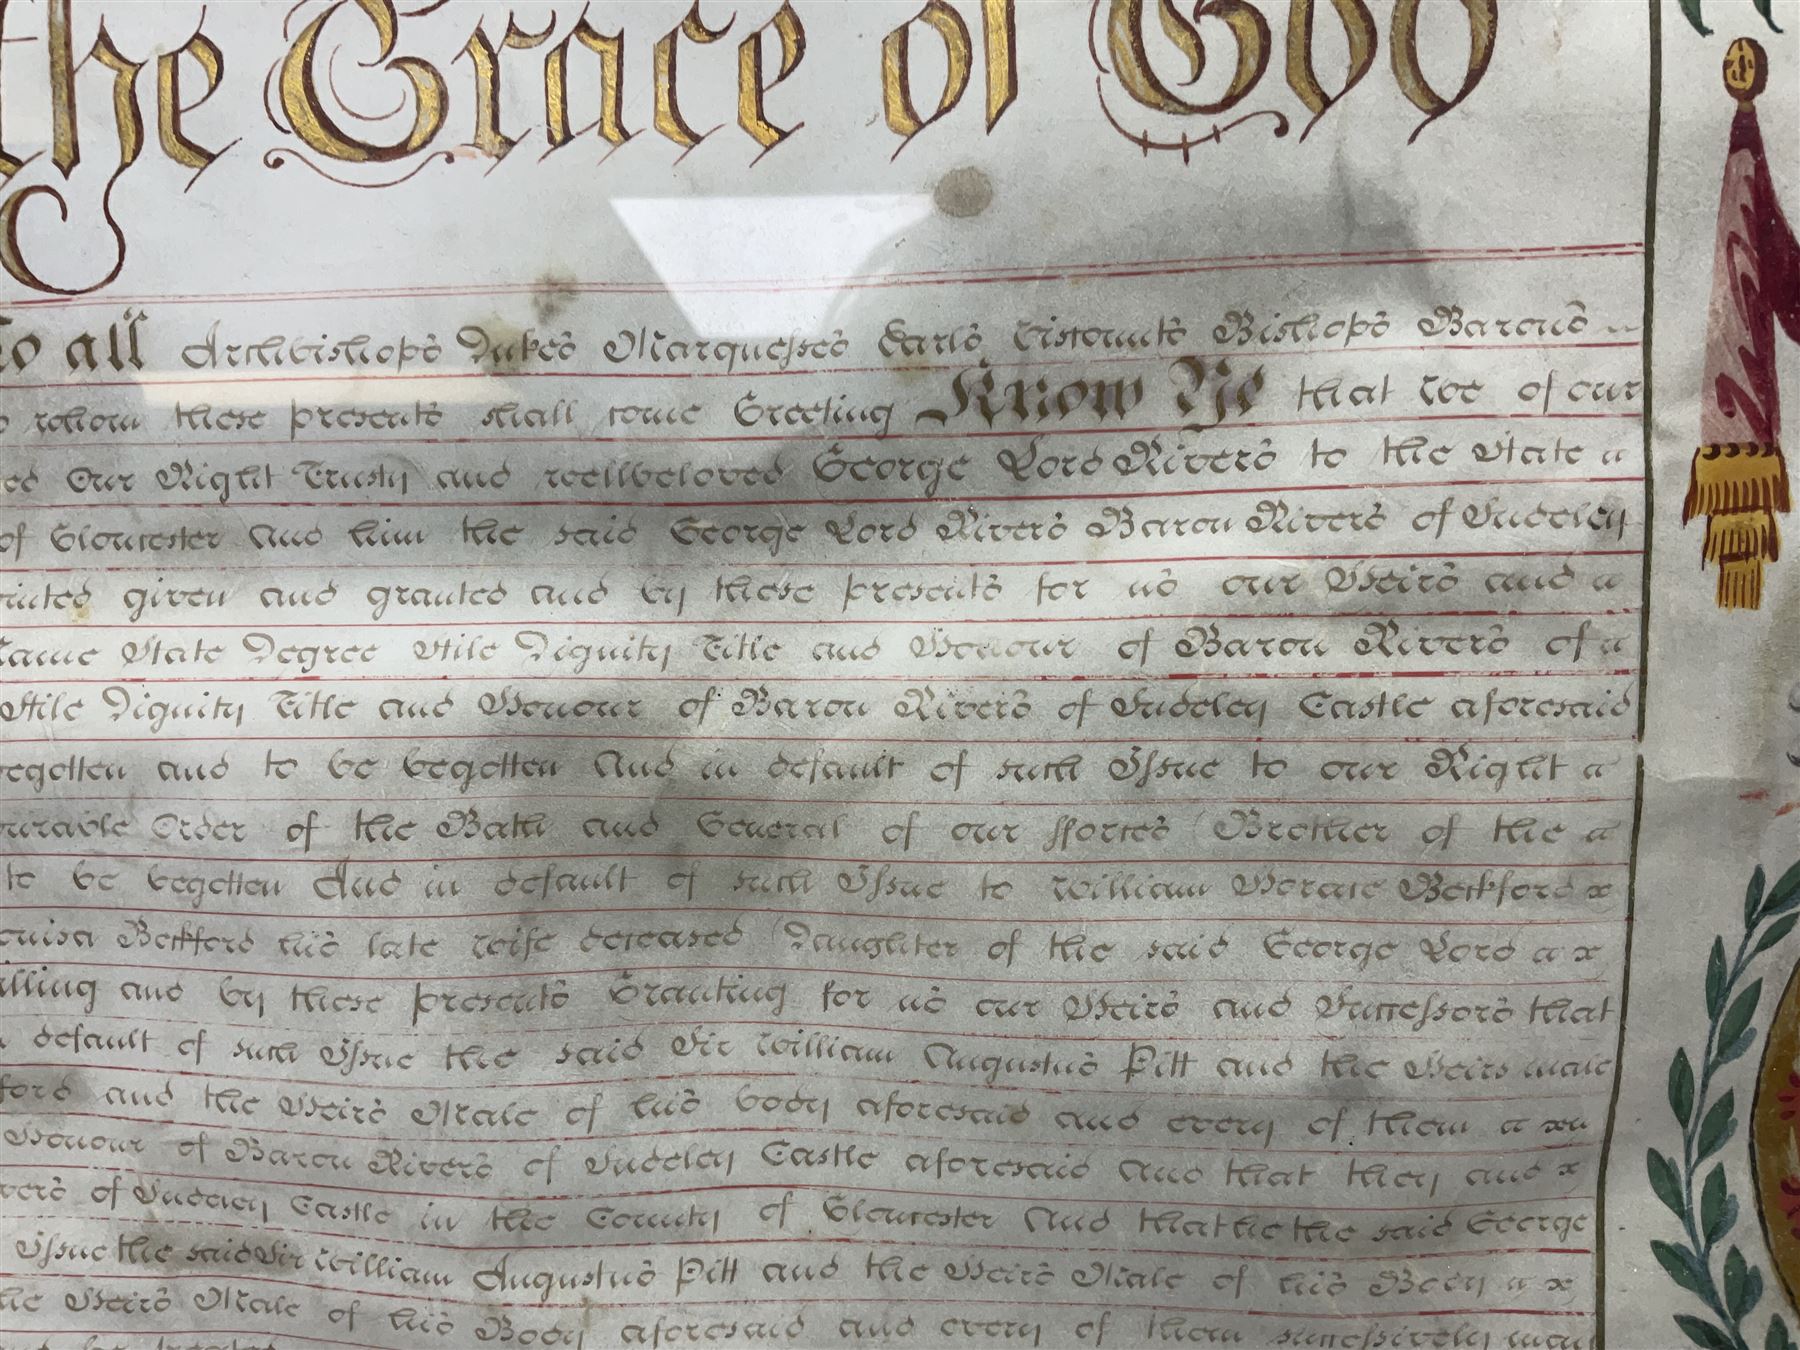 the Grace of God
To all Archbishops Dukes Marquesses Earls Viscounts Bishops Barons
whom these presents shall come Greeting Know Ye that we of our
Our Right Trusty and wellbeloved George Lord Rivers to the State a
of Gloucester And him the said George Lord Rivers Baron Rivers of Sudeley
given and granted and by these presents for us our Heirs and a
Name State Degree Stile Dignity Title and Honour of Baron Rivers of a
Stile Dignity Title and Honour of Baron Rivers of Sudeley Castle aforesaid
begotten and to be begotten And in default of such Issue to our Right a
ourable Order of the Bath and General of our fforces Brother of the a
to be begotten And in default of such Issue to William Horace Beckford x
ouisa Beckford his late wife deceased Daughter of the said George Lord a x
illing and by these presents Granting for us our Heirs and Successors that
default of such Issue the said Sir William Augustus Pitt and the Heirs male
ford and the Heirs Male of his body aforesaid and every of them a xn
Honour of Baron Rivers of Sudeley Castle aforesaid and that they and x
vers of Sudeley Castle in the County of Gloucester And that he the said George
Issue the said Sir William Augustus Pitt and the Heirs Male of his Body a x
the Heirs Male of his Body aforesaid and every of them successively may